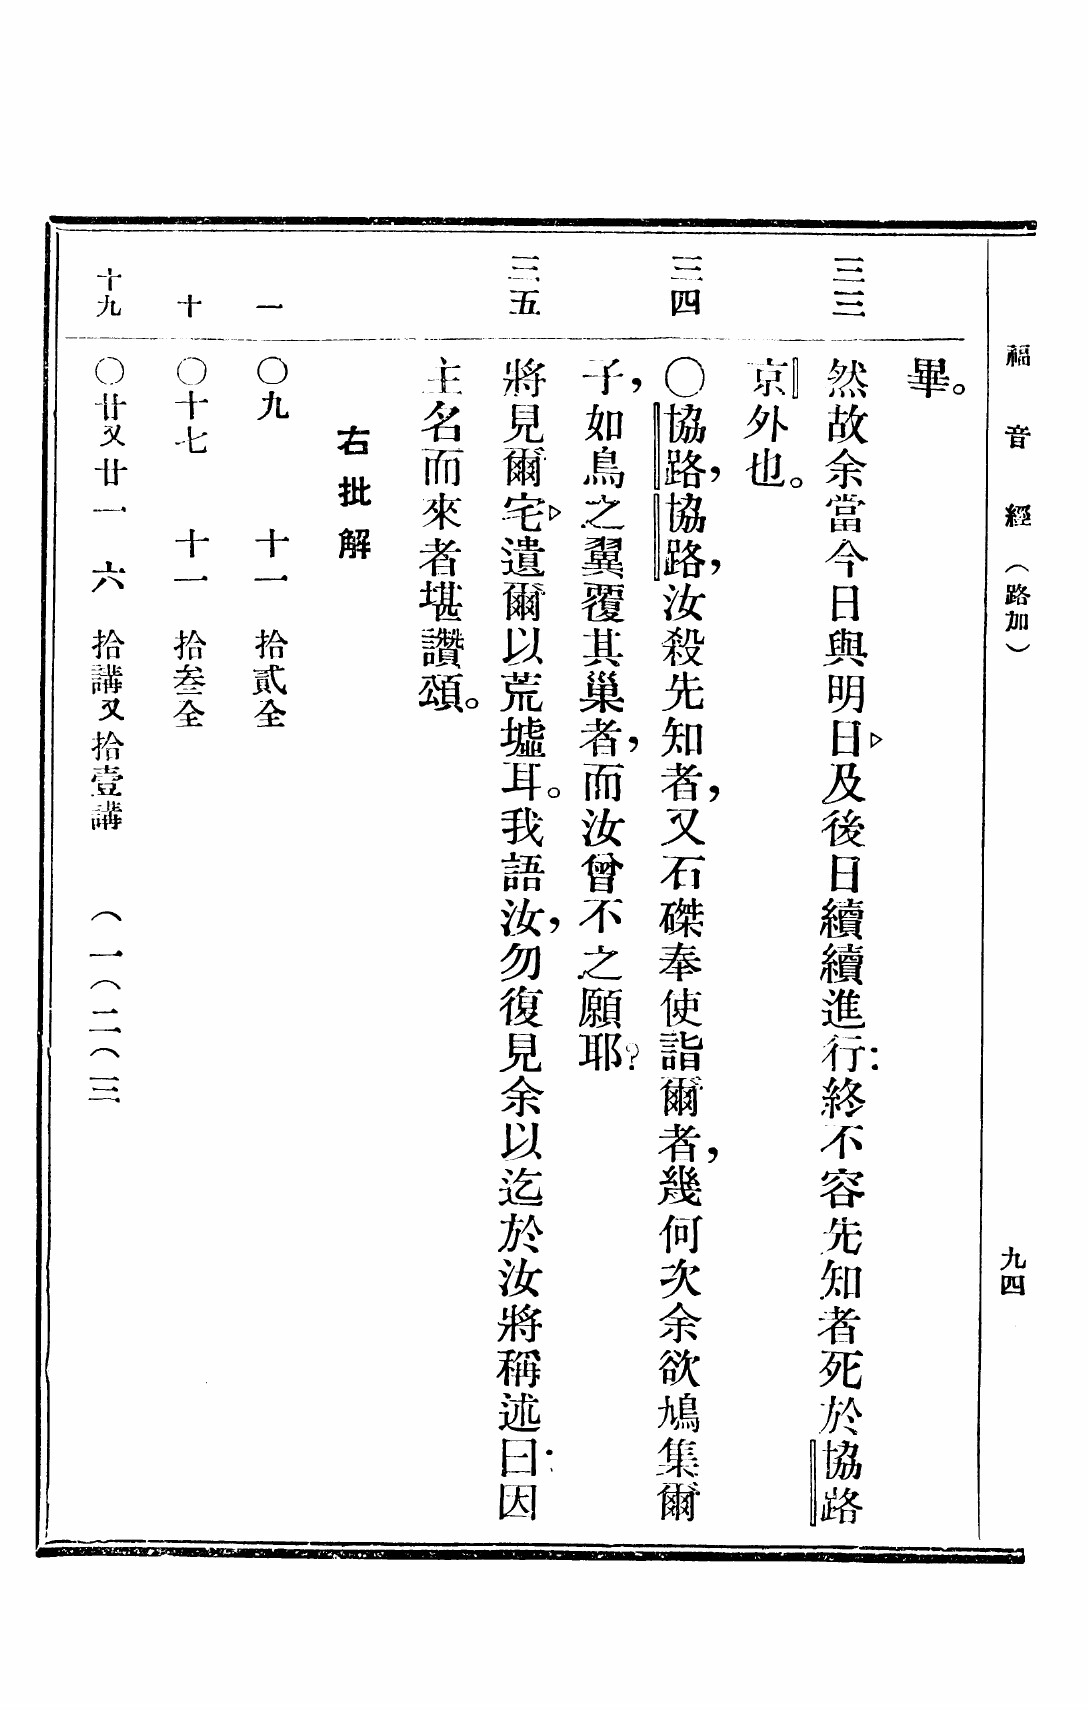 福音經（路加） 九四
畢。
三三 然故余當今日與明日▷及後日續續進行：終不容先知者死於協路
京外也。
三四 〇協路，協路，汝殺先知者，又石磔奉使詣爾者，幾何次余欲鳩集爾
子，如鳥之翼覆其巢者，而汝曾不之願耶？
三五 將見爾宅▷遺爾以荒墟耳。我語汝，勿復見余以迄於汝將稱述曰：因
主名而來者堪讚頌。
右批解
一 〇九 十一 拾貳全
十 〇十七 十一 拾叁全
十九 〇廿又廿一 六 拾講又拾壹講 （一（二（三